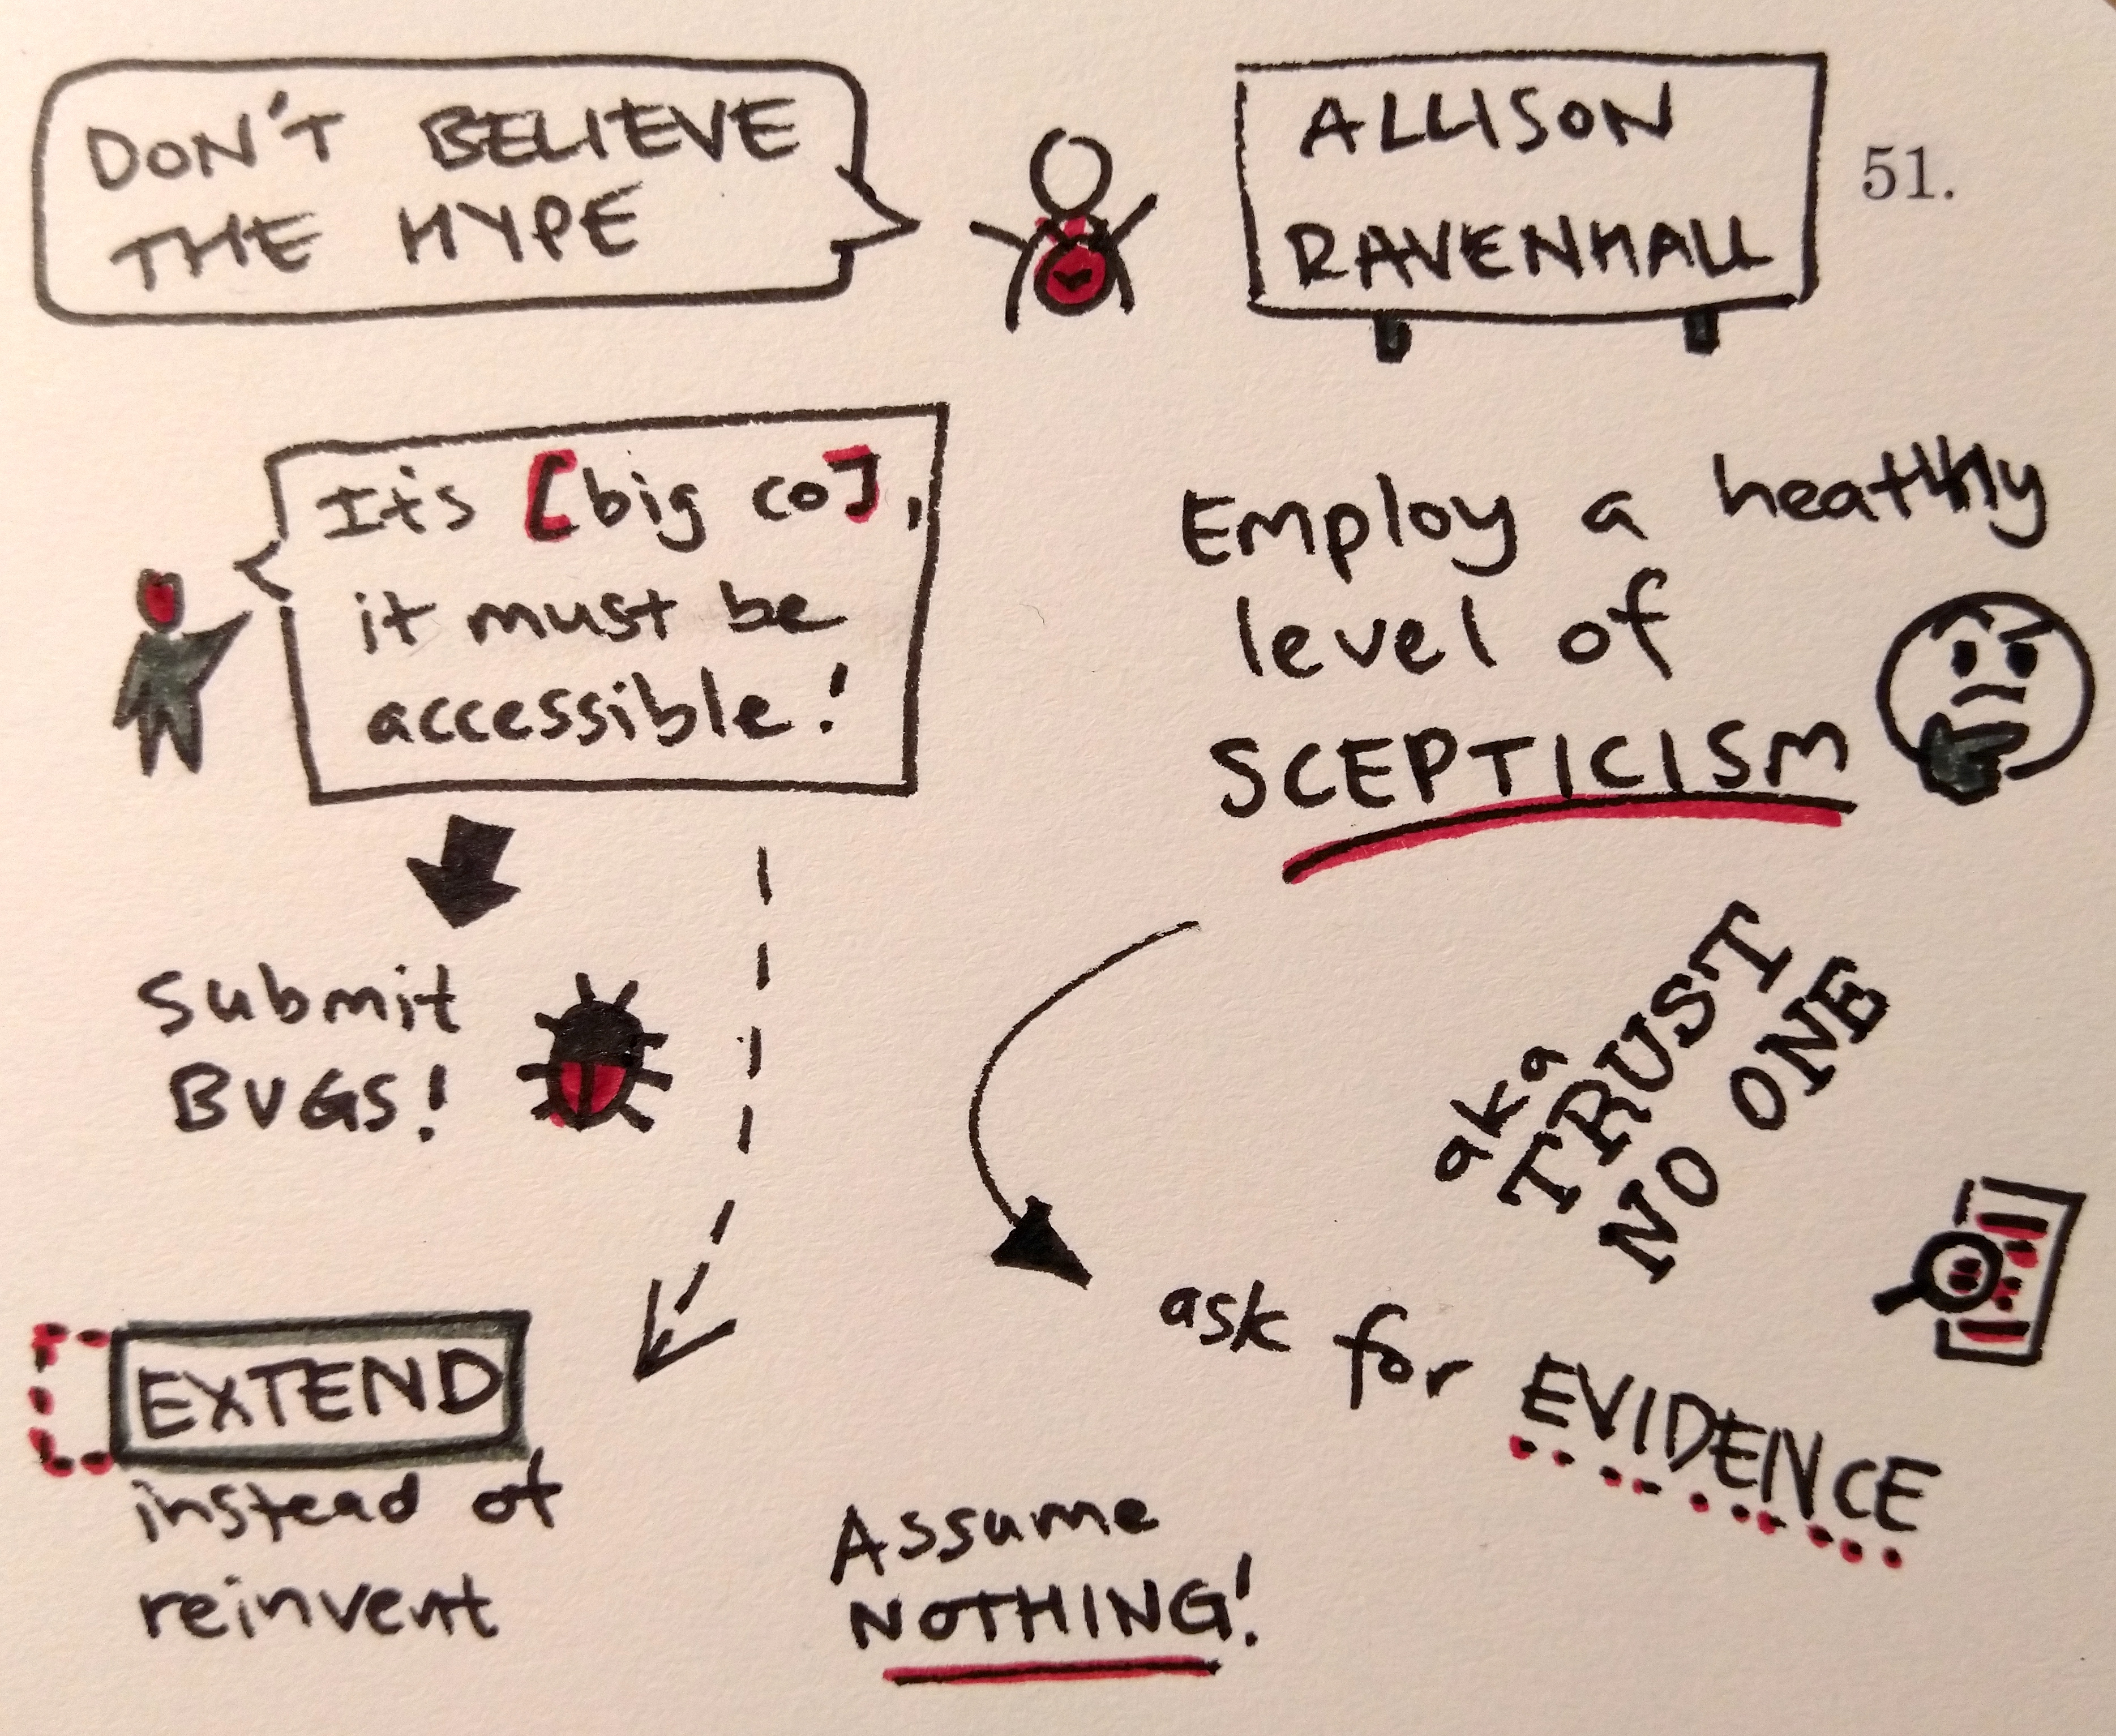 DON'T BELIEVE
THE HYPE
ALLISON
RAVENHALL
51.
It's [big co],
it must be
accessible!
Employ a healthy
level of
SCEPTICISM
aka
TRUST
NO ONE
Submit
BUGS!
ask for EVIDENCE
EXTEND
instead of
reinvent
Assume
NOTHING!